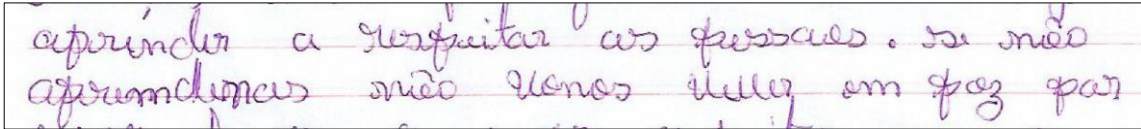 aprender a respeitar as pessoas. se não
aprendemos não vamos viver em paz par